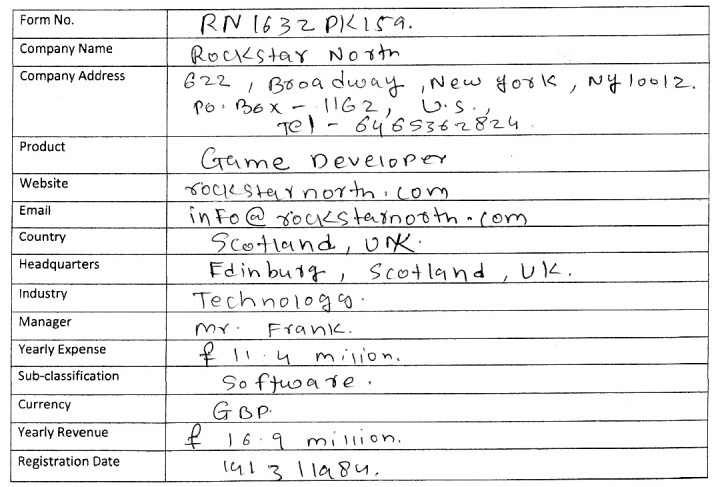 Form No. RN1632PK159.
Company Name Rockstar North
Company Address 622, Broadway, New York, NY10012.
Po. Box - 1162, U.S.,
Tel - 6465362824.
Product Game Developer
Website rockstarnorth.com
Email info@rockstarnorth.com
Country Scotland, UK.
Headquarters Edinburg, Scotland, UK.
Industry Technology.
Manager Mr. Frank.
Yearly Expense £ 11.4 million.
Sub-classification Software.
Currency GBP.
Yearly Revenue £ 16.9 million.
Registration Date 14/3/1984.